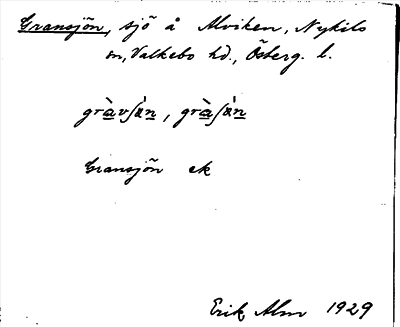 Gransjön, sjö å Alviken, Nykils
sn, Valkebo hd., Österg. l.
gràvʃɑ̀n, gràʃɑ̀n
Gransjön ek
Erik Alm 1929